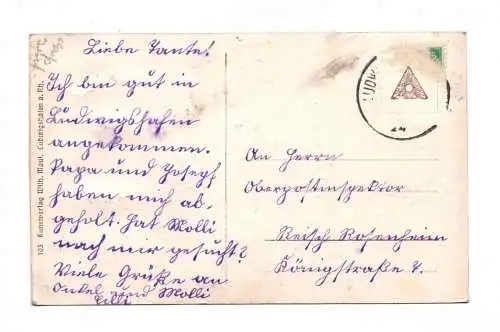 Liebe Tante!
Ich bin gut in
Ludwigshafen
angekommen.
Papa und Joseph
haben mich ab-
geholt. Hat Molli
nach mir gesucht?
Viele Grüße an
Onkel und Molli
Cilli
103 Kunstverlag Wilh. Maul, Ludwigshafen a. Rh.
An Herrn
Oberpostinspektor
Reisch Rosenheim
Königstraße 7.
LUDW
24